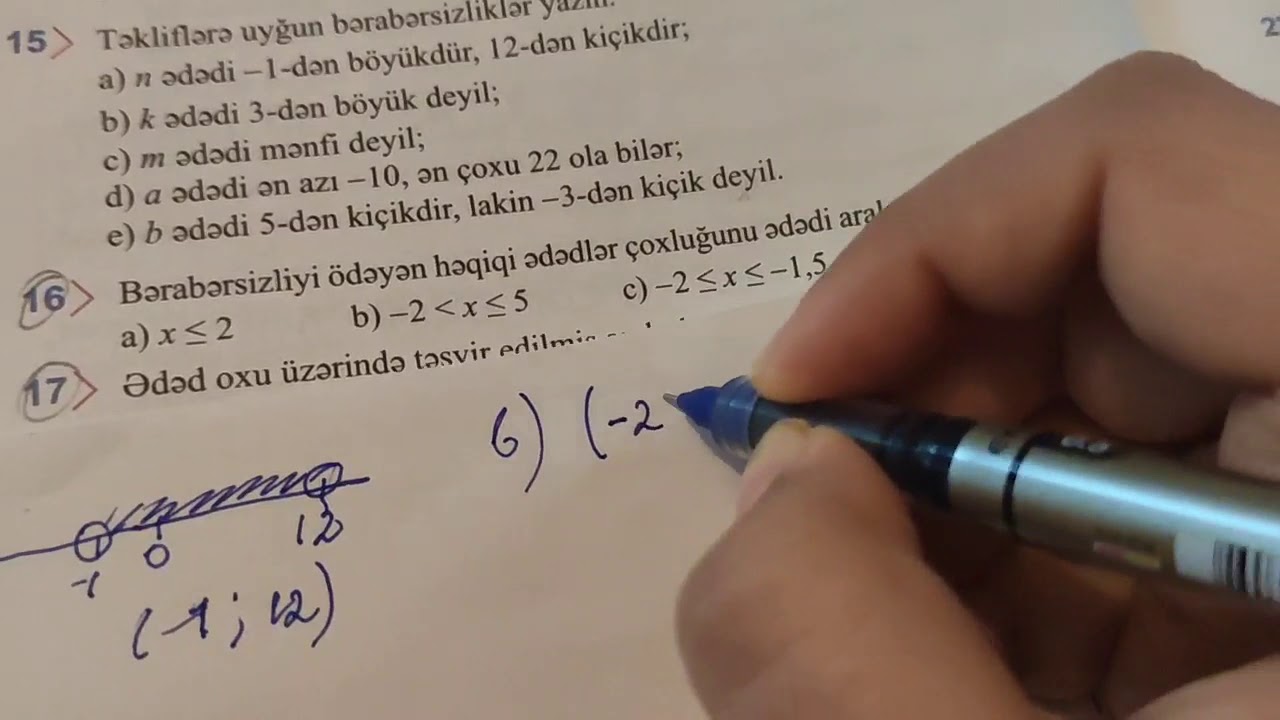 15 Təkliflərə uyğun bərabərsizliklər yazın.
a) n ədədi –1-dən böyükdür, 12-dən kiçikdir;
b) k ədədi 3-dən böyük deyil;
c) m ədədi mənfi deyil;
d) a ədədi ən azı –10, ən çoxu 22 ola bilər;
e) b ədədi 5-dən kiçikdir, lakin –3-dən kiçik deyil.
16 Bərabərsizliyi ödəyən həqiqi ədədlər çoxluğunu ədədi
a) x ≤ 2 b) –2 < x ≤ 5 c) –2 ≤ x ≤ –1,5
17 Ədəd oxu üzərində təsvir edilmiş
6) (-2
-1 0 12
(-1; 12)